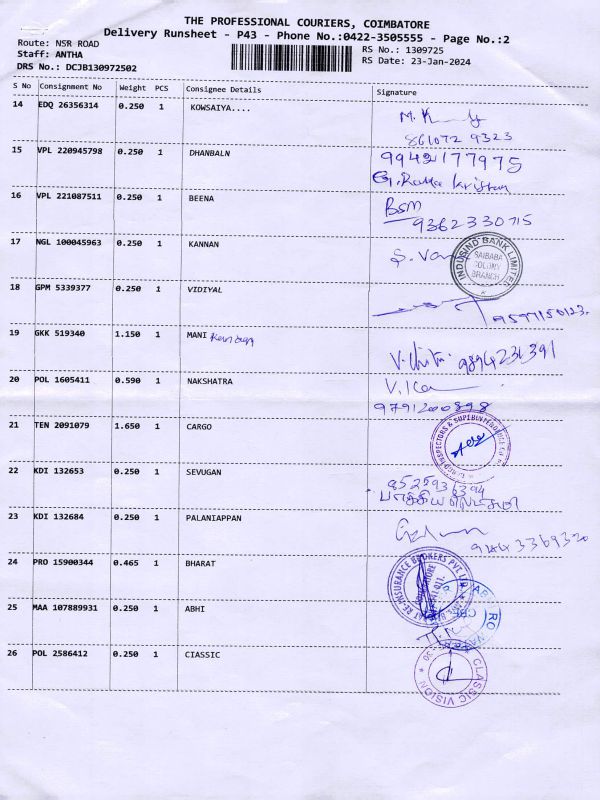 THE PROFESSIONAL COURIERS, COIMBATORE
Delivery Runsheet - P43 - Phone No.:0422-3505555 - Page No.:2
Route: NSR ROAD
Staff: ANTHA
DRS No.: DCJB130972502
RS No.: 1309725
RS Date: 23-Jan-2024
S No Consignment No Weight PCS Consignee Details Signature
14 EDQ 26356314 0.250 1 KOWSAIYA....
861072 9323
15 VPL 220945798 0.250 1 DHANBALN 9942177975
16 VPL 221087511 0.250 1 BEENA BSM
9362330715
17 NGL 100045963 0.250 1 KANNAN
INDUSIND BANK LIMITED
SAIBABA
COLONY
BRANCH
18 GPM 5339377 0.250 1 VIDIYAL
9597150123.
19 GKK 519340 1.150 1 MANI
9894236391
20 POL 1605411 0.590 1 NAKSHATRA
9791200898
21 TEN 2091079 1.650 1 CARGO
22 KDI 132653 0.250 1 SEVUGAN
8525936394
23 KDI 132684 0.250 1 PALANIAPPAN
9443369320
24 PRO 15900344 0.465 1 BHARAT
RE-INSURANCE BROKERS PVT. LTD.
25 MAA 107889931 0.250 1 ABHI
26 POL 2586412 0.250 1 CIASSIC
CLASSIC VISION